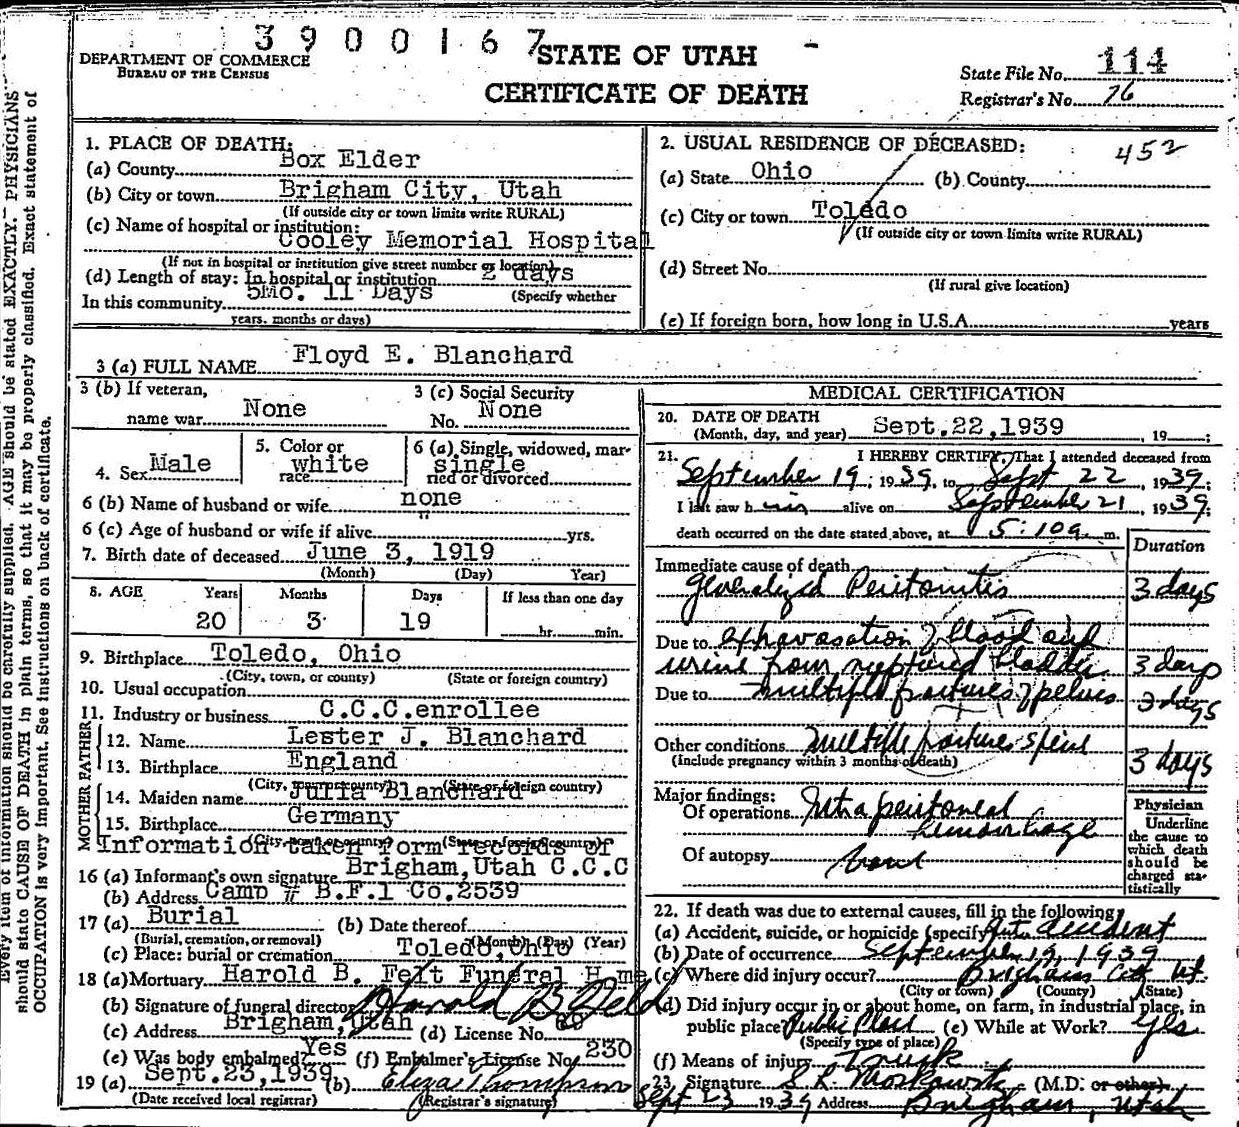 3900167
DEPARTMENT OF COMMERCE
BUREAU OF THE CENSUS
STATE OF UTAH
CERTIFICATE OF DEATH
State File No. 114
Registrar's No. 76
Every item of information should be carefully supplied. AGE should be stated EXACTLY. PHYSICIANS
should state CAUSE OF DEATH in plain terms, so that it may be properly classified. Exact statement of
OCCUPATION is very important. See instructions on back of certificate.
1. PLACE OF DEATH:
(a) County Box Elder
(b) City or town Brigham City, Utah
(If outside city or town limits write RURAL)
(c) Name of hospital or institution:
Cooley Memorial Hospital
(If not in hospital or institution give street number or location)
(d) Length of stay: In hospital or institution 2 days
In this community 5Mo. 11 Days (Specify whether
years, months or days)
2. USUAL RESIDENCE OF DECEASED: 452
(a) State Ohio (b) County
(c) City or town Toledo
(If outside city or town limits write RURAL)
(d) Street No.
(If rural give location)
(e) If foreign born, how long in U.S.A. years
3 (a) FULL NAME Floyd E. Blanchard
3 (b) If veteran,
name war None
3 (c) Social Security
No. None
4. Sex Male
5. Color or
race white
6 (a) Single, widowed, mar-
ried or divorced single
6 (b) Name of husband or wife none
6 (c) Age of husband or wife if alive " yrs.
7. Birth date of deceased June 3, 1919
(Month) (Day) Year)
8. AGE Years Months Days If less than one day
20 3 19 hr. min.
9. Birthplace Toledo, Ohio
(City, town, or county) (State or foreign country)
10. Usual occupation
11. Industry or business C.C.C.enrollee
FATHER
12. Name Lester J. Blanchard
13. Birthplace England
(City, town or county) (State or foreign country)
MOTHER
14. Maiden name Julia Blanchard
15. Birthplace Germany
(City, town or county) (State or foreign country)
Information taken form records of
16 (a) Informant's own signature Brigham,Utah C.C.C
(b) Address Camp # B.F.1 Co.2539
17 (a) Burial (b) Date thereof
(Burial, cremation, or removal) (Month) (Day) (Year)
(c) Place: burial or cremation Toledo,Ohio
18 (a) Mortuary Harold B. Felt Funeral Home
(b) Signature of funeral director Harold B Felt
(c) Address Brigham,Utah (d) License No.
(e) Was body embalmed? Yes (f) Embalmer's License No. 230
19 (a) Sept.23,1939 (b) Eliza Thompson
(Date received local registrar) (Registrar's signature)
MEDICAL CERTIFICATION
20. DATE OF DEATH
(Month, day, and year) Sept.22,1939 , 19 ;
21. I HEREBY CERTIFY, That I attended deceased from
September 19, 1939, to Sept 22, 1939;
I last saw him alive on September 21, 1939;
death occurred on the date stated above, at 5:10 a. m.
Duration
Immediate cause of death
generalized Peritonitis 3 days
Due to extravasation of blood and
urine from ruptured bladder 3 days
Due to multiple fractures of pelvis 3 days
Other conditions Multiple fractures spine 3 days
(Include pregnancy within 3 months of death)
Major findings:
Of operations Intraperitoneal
hemorrhage
Of autopsy
Physician
Underline
the cause to
which death
should be
charged sta-
tistically
22. If death was due to external causes, fill in the following:
(a) Accident, suicide, or homicide (specify) Auto Accident
(b) Date of occurrence September 19, 1939
(c) Where did injury occur? Brigham City Ut.
(City or town) (County) (State)
(d) Did injury occur in or about home, on farm, in industrial place, in
public place? Public Place (e) While at Work? Yes
(Specify type of place)
(f) Means of injury Truck
23. Signature (M.D. or other)
Sept 23 1939 Address Brigham, Utah